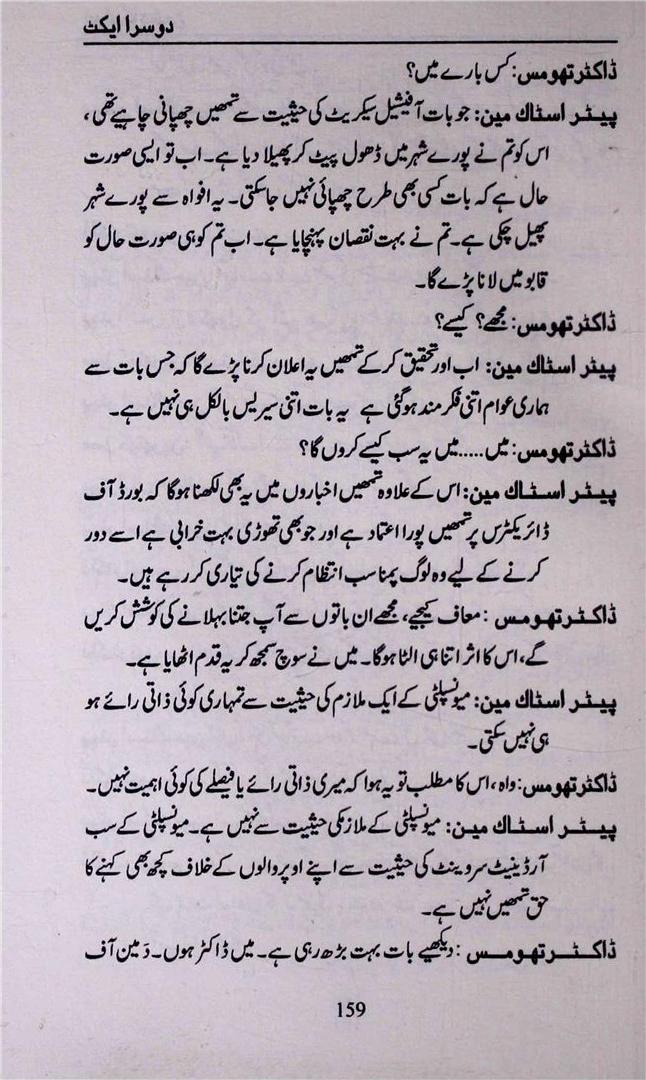 دوسرا ایکٹ
ڈاکٹر تھومس: کس بارے میں؟
پیٹر اسٹاک مین: جو بات آفیشیل سیکریٹ کی حیثیت سے تمھیں چھپانی چاہیے تھی،
اس کو تم نے پورے شہر میں ڈھول پیٹ کر پھیلا دیا ہے۔ اب تو ایسی صورت
حال ہے کہ بات کسی بھی طرح چھپائی نہیں جاسکتی۔ یہ افواہ سے پورے شہر
پھیل چکی ہے۔ تم نے بہت نقصان پہنچایا ہے۔ اب تم کو ہی صورت حال کو
قابو میں لانا پڑے گا۔
ڈاکٹر تھومس: مجھے؟ کیسے؟
پیٹر اسٹاک مین: اب اور تحقیق کر کے تمھیں یہ اعلان کرنا پڑے گا کہ جس بات سے
ہماری عوام اتنی فکر مند ہوگئی ہے یہ بات اتنی سیریس بالکل ہی نہیں ہے۔
ڈاکٹر تھومس: میں.....میں یہ سب کیسے کروں گا؟
پیٹر اسٹاک مین: اس کے علاوہ تمھیں اخباروں میں یہ بھی لکھنا ہوگا کہ بورڈ آف
ڈائریکٹرس پر تمھیں پورا اعتماد ہے اور جو بھی تھوڑی بہت خرابی ہے اسے دور
کرنے کے لیے وہ لوگ پمنا سب انتظام کرنے کی تیاری کر رہے ہیں۔
ڈاکٹر تھومس : معاف کیجیے، مجھے ان باتوں سے آپ جتنا بہلانے کی کوشش کریں
گے، اس کا اثر اتنا ہی الٹا ہوگا۔ میں نے سوچ سمجھ کر یہ قدم اٹھایا ہے۔
پیٹر اسٹاک مین: میونسپلٹی کے ایک ملازم کی حیثیت سے تمہاری کوئی ذاتی رائے ہو
ہی نہیں سکتی۔
ڈاکٹر تھومس: واہ، اس کا مطلب تو یہ ہوا کہ میری ذاتی رائے یا فیصلے کی کوئی اہمیت نہیں۔
پیٹر اسٹاک مین: میونسپلٹی کے ملازمکی حیثیت سے نہیں ہے۔ میونسپلٹی کے سب
آرڈینیٹ سروینٹ کی حیثیت سے اپنے اوپر والوں کے خلاف کچھ بھی کہنے کا
حق تمھیں نہیں ہے۔
ڈاکٹر تھومس : دیکھیے بات بہت بڑھ رہی ہے۔ میں ڈاکٹر ہوں۔ دَ مین آف
159